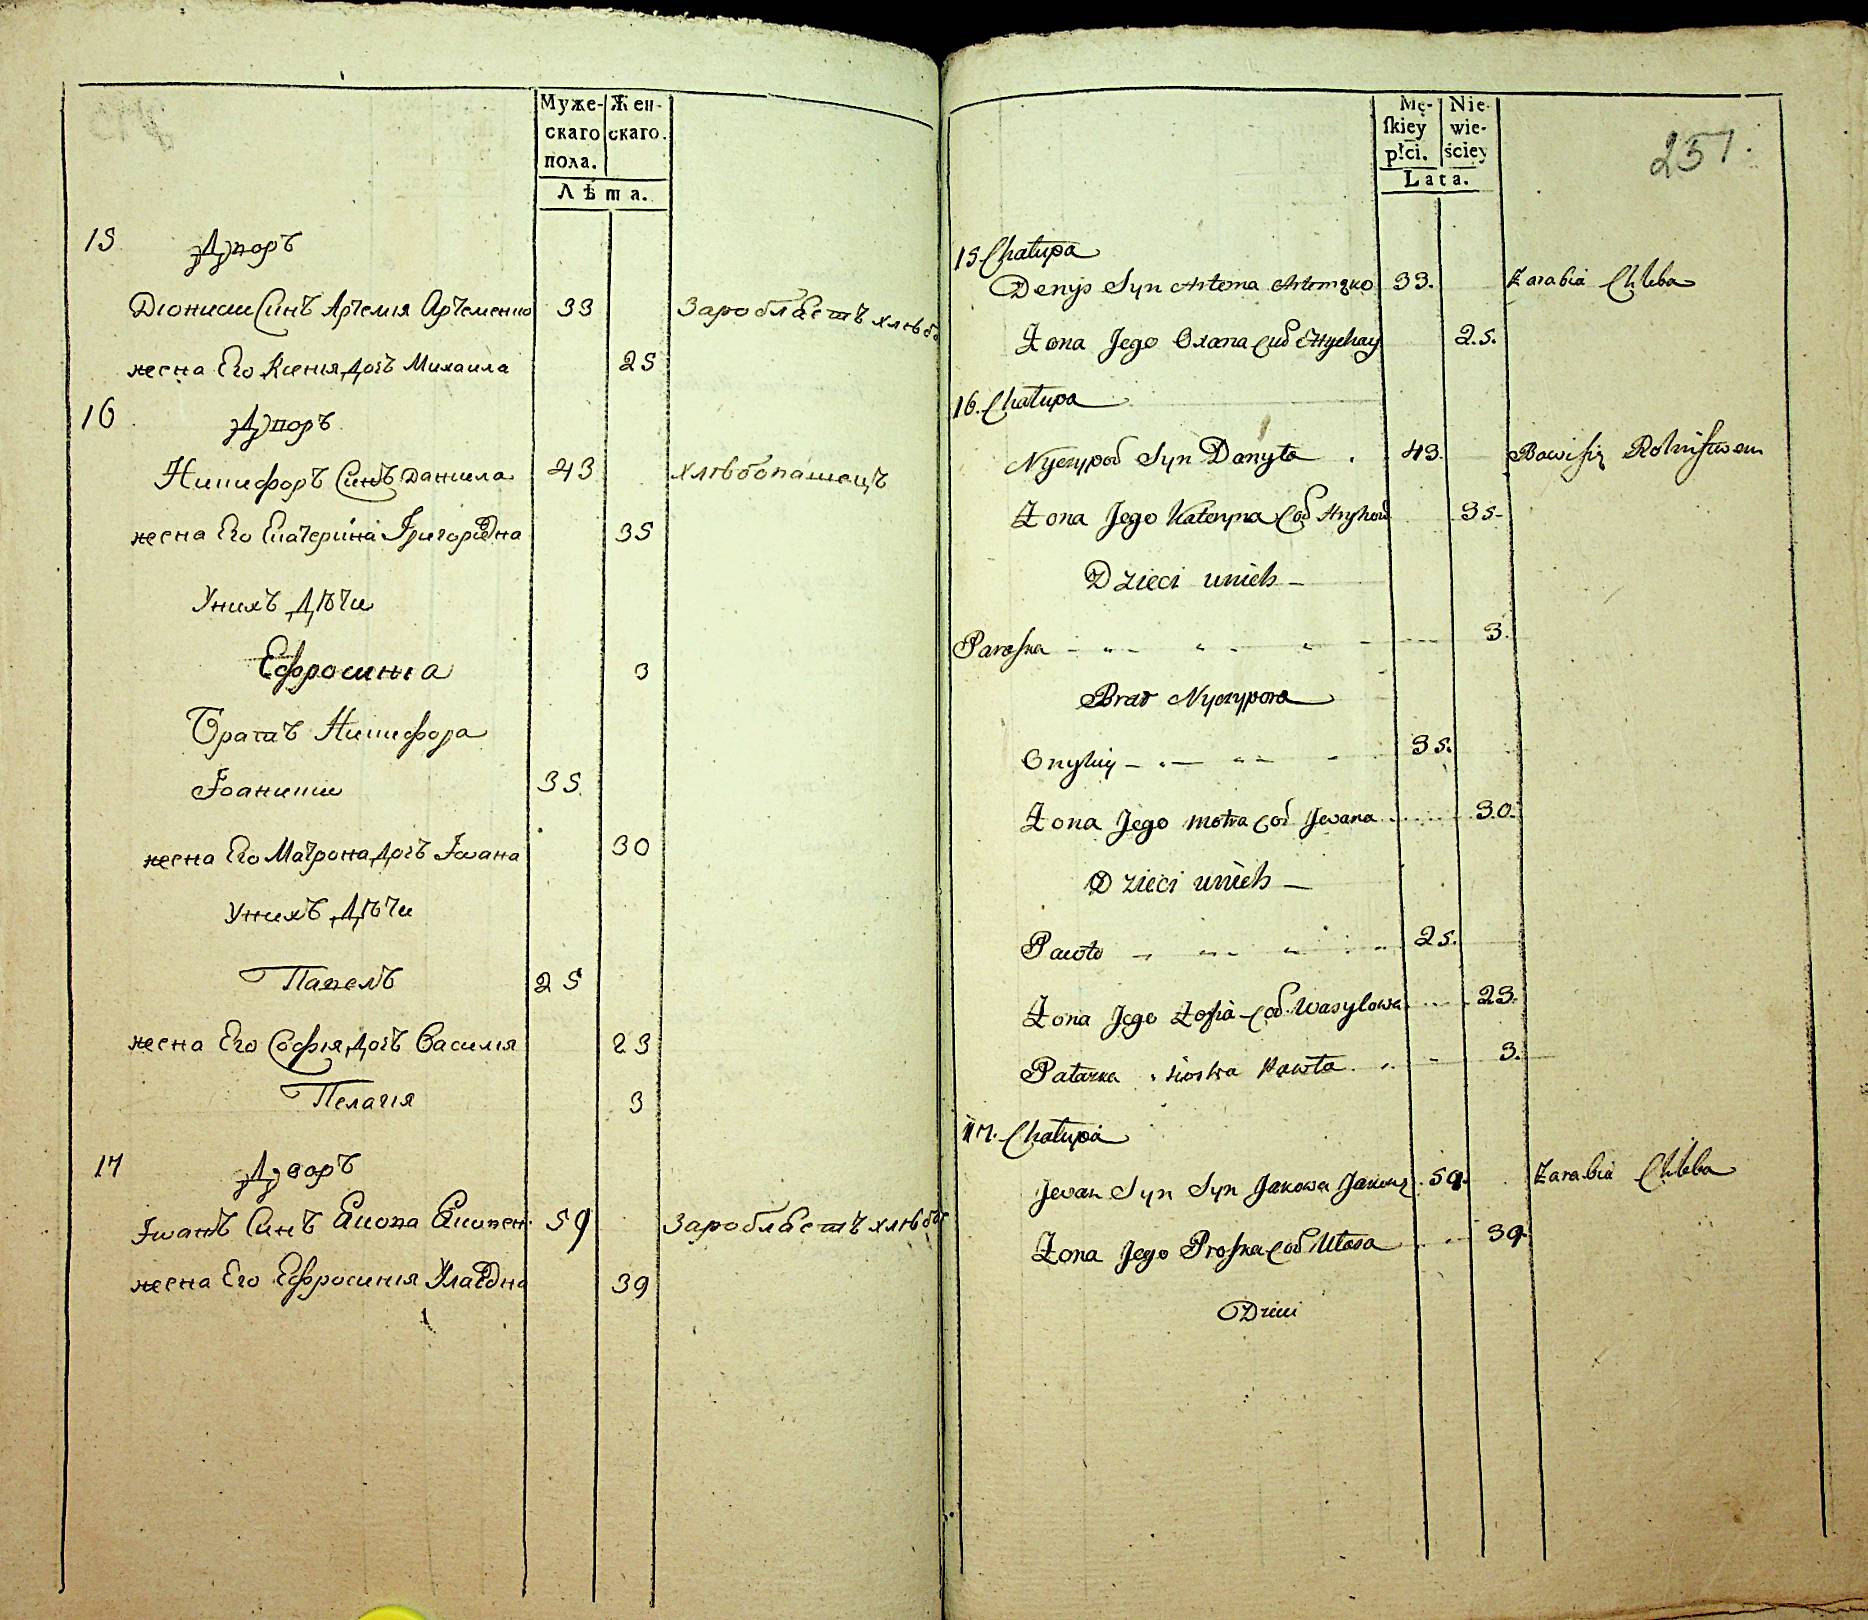 Муже- Жен-
скаго скаго.
пола.
Лѣта.
15 Дворъ
Дионисии Синъ Артемія Артеменко 33 Заробляетъ хлѣба
жена Его Ксенія дочь Михаила 25
16 Дворъ
Никифоръ Синъ Данила 43 хлѣбопашецъ
жена Его Екатерина Григоровна 35
Унихъ дѣти
Ефросиния 3
Братъ Никифора
35
жена Его Матрона дочь Ивана 30
Унихъ дѣти
Павелъ 25
жена Его Софія дочь Василія 23
Пелагія 3
17 Дворъ
Іванъ Синъ 59 Заробляетъ хлѣба
жена Его Ефросинія 39
Mę- Nie-
skiey wie-
płci. ściey
Lata.
251.
15 Chałupa
Denys Syn Artema 33. Zarabia Chleba
Żona Jego Oxana 25.
16. Chałupa
Nyczypor Syn Danyła 43. Bawi się Rolnistwem
Żona Jego Kateryna Cod Hryhora 35-
Dzieci unich -
Paroska 3.
Brat Nyczypora
35.
Żona Jego Motra Cod Jwana 30.
Dzieci unich -
Pawło 25.
Żona Jego Zofia - Cod Wasylowa 23.
Patazka siostra Pawła 3.
17. Chałupa
Jwan Syn Syn Jakowa 59. Zarabia Chleba
Żona Jego Proska Cod Ułasa 39.
Dzieci